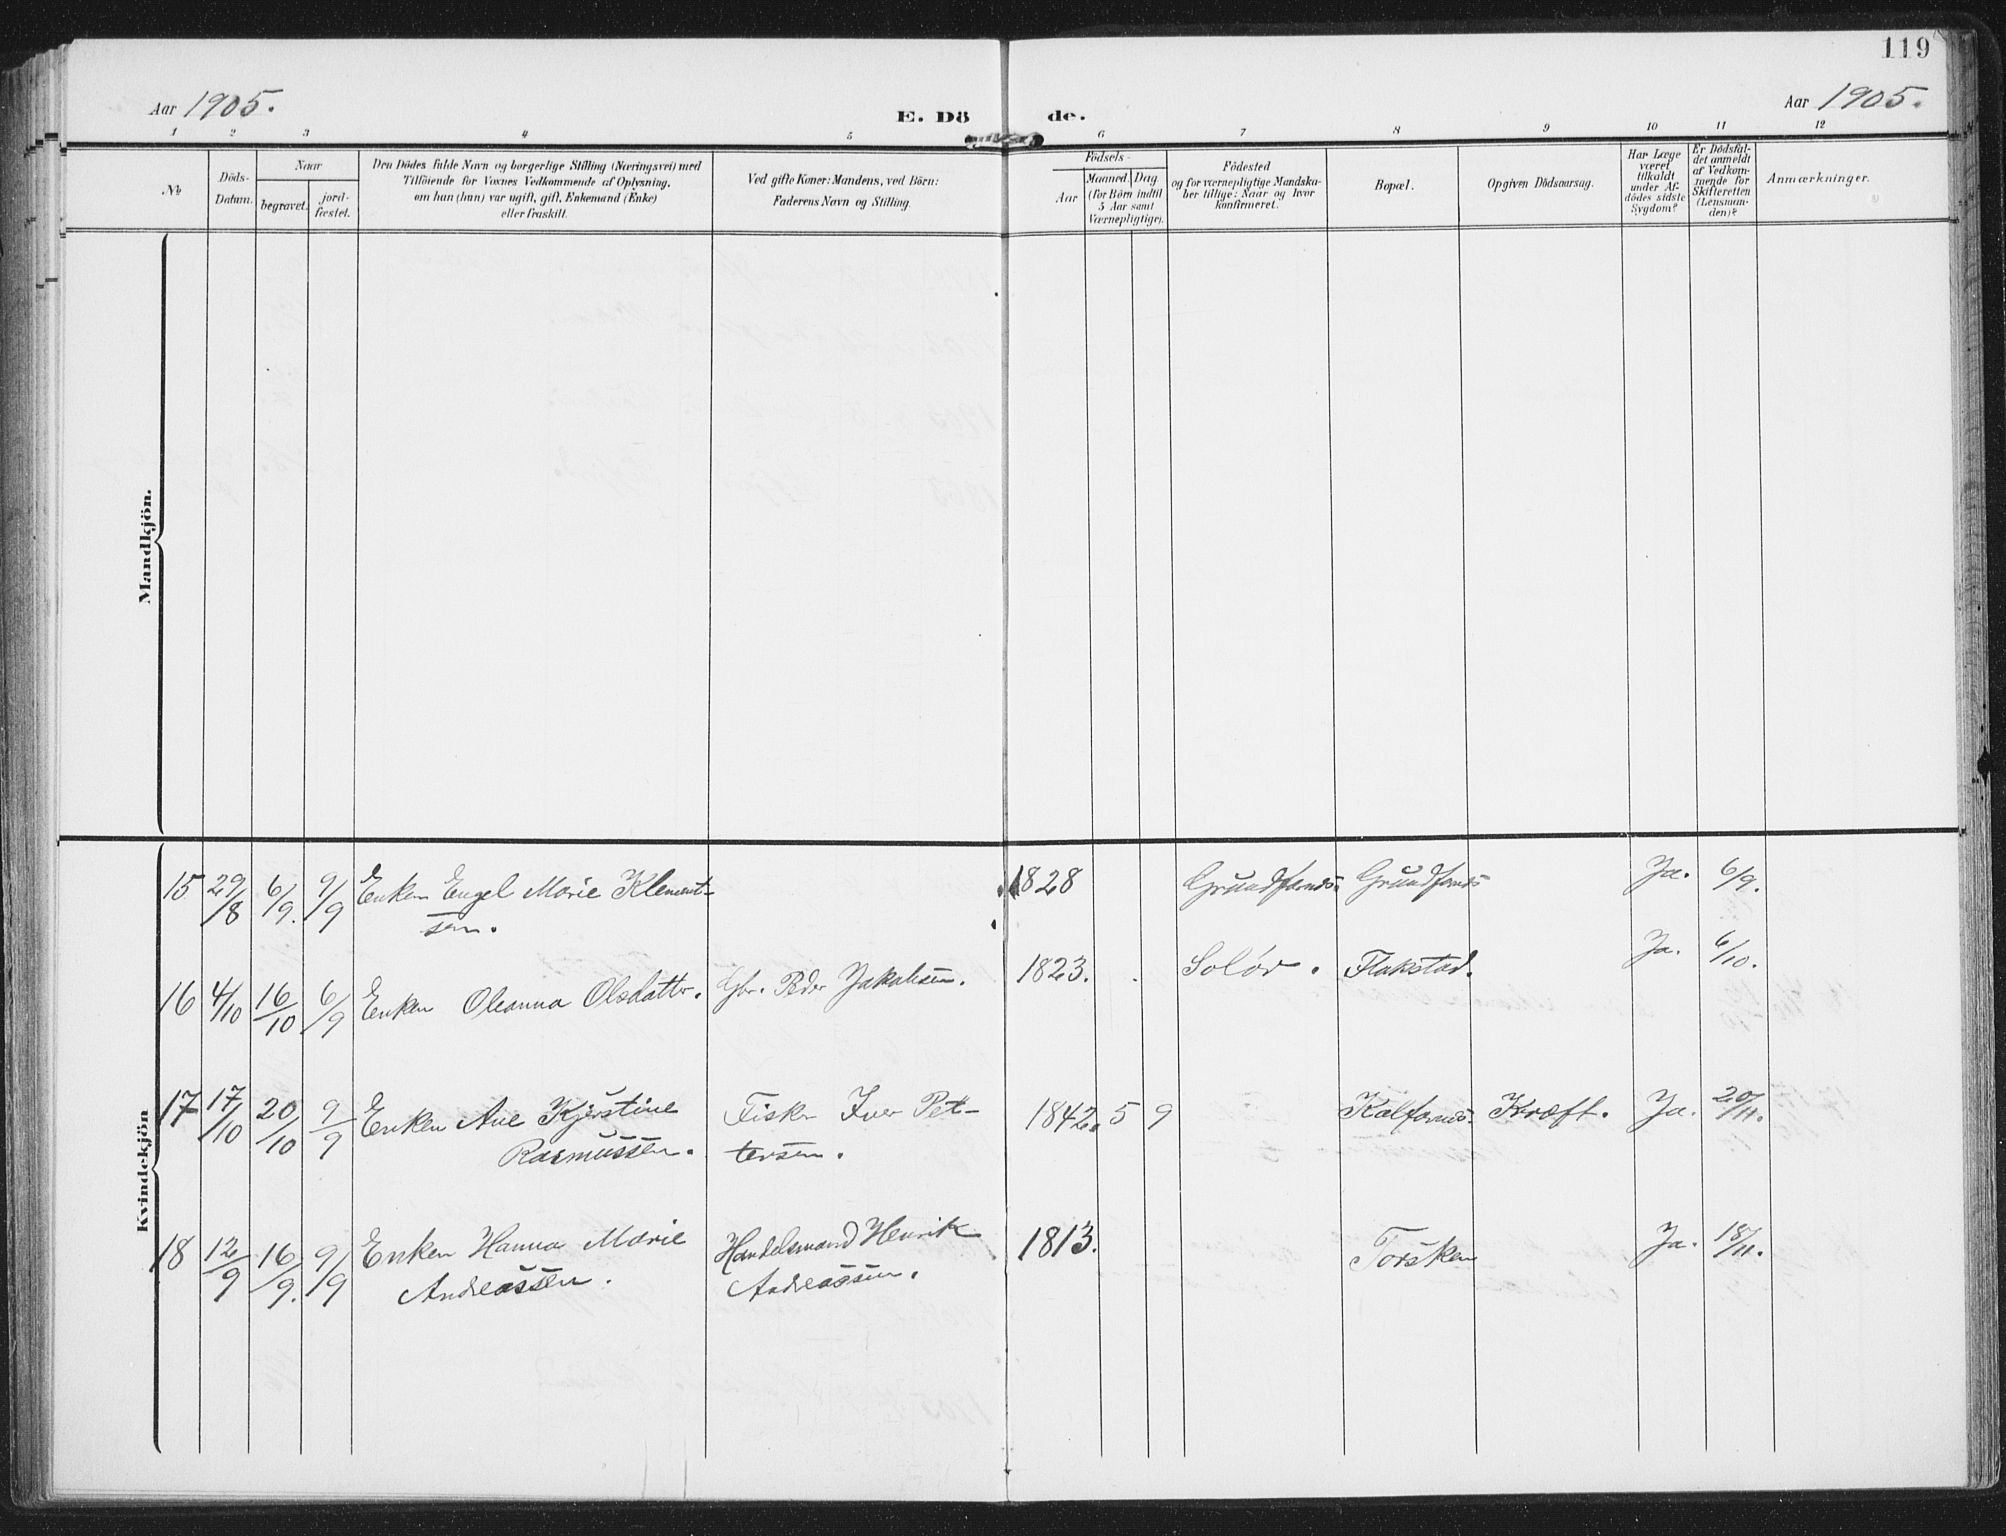 119
Aar 1905.
E. Dö de.
Aar 1905.
1 2 3 4 5 6 7 8 9 10 11 12
No
Döds-
Datum.
Naar
begravet.
jord-
fæstet.
Den Dödes fulde Navn og borgerlige Stilling (Næringsvei) med
Tilföiende for Voxnes Vedkommende af Oplysning,
om han (hun) var ugift, gift, Enkemand (Enke)
eller fraskilt.
Ved gifte Koner: Mandens, ved Börn:
Faderens Navn og Stilling.
Födsels-
Aar
Maaned. Dag
(for Börn indtil
5 Aar samt
Værnepligtige).
Födested
og for værnepligtige Mandska-
ber tillige: Naar og hvor
konfirmeret.
Bopæl.
Opgiven Dödsaarsag.
Har Læge
været
tilkaldt
under Af-
dödes sidste
Sygdom?
Er Dödsfal-
det anmeldt
af Vedkom-
mende for
Skifteretten
(Lensman-
den)?
Anmærkninger.
Mandkjön.
Kvindekjön
15 29/8 6/9. 9/9 Enken Engel Marie Klement- 1828 Grundfarnes. Grundfarnes Ja. 6/9.
sen.
16 4/10 16/10 6/9 Enken Oleanna Olsdatter. Gbr. Peder Jakobsen. 1823. Solör. Flakstad. Ja. 6/10.
17 17/10 20/10 9/9 Enken Ane Kjerstine Fisker Iver Pet- 1842. 5 9 Kalfarnes. Kræft. Ja. 20/11.
Rasmussen. tersen.
18 12/9 16/9. 9/9 Enken Hanna Marie Handelsmand Henrik 1813. Torsken Ja. 18/11.
Andreassen. Andreassen.